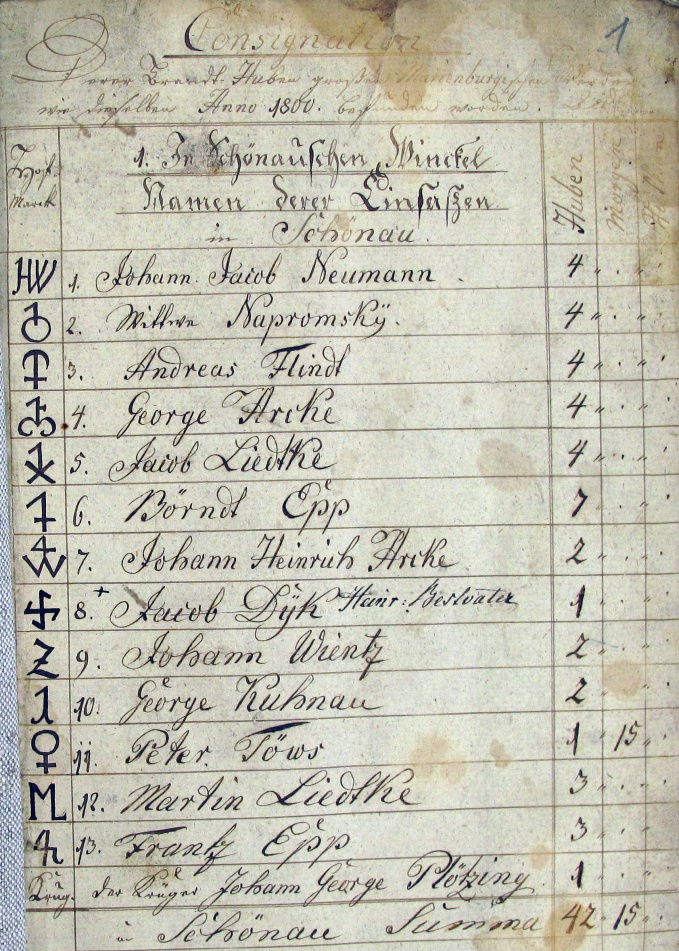 1
Consignation
Derer Brandt-Huben großen Marienburgschen
wie dieselben Anno 1800. befunden worden.
Hoff-Marck
1. In Schönauschen Winckel
Namen derer Einsaßen
in Schönau.
Huben
Morgen
HW 1. Johann Jacob Neumann 4 " · " · "
2. Wittwe Napromskÿ. 4 " · " · "
3. Andreas Flindt 4 " · " · "
4. George Arcke 4 " · " · "
5. Jacob Liedtke 4 " · " · "
6. Börndt Epp 7 · "
7. Johann Heinrich Arcke 2 · "
8. + Jacob Dÿk Heinr: Bestvater 1 · "
9. Johann Wientz 2 · "
10. George Kuhnau 2 · "
11. Peter Töws 1 " 15 "
12. Martin Liedtke 3 " · "
13. Frantz Epp 3 · "
Krug. der Krüger Johann George Plötzing 1 · "
in Schönau Summa 42 " 15 "